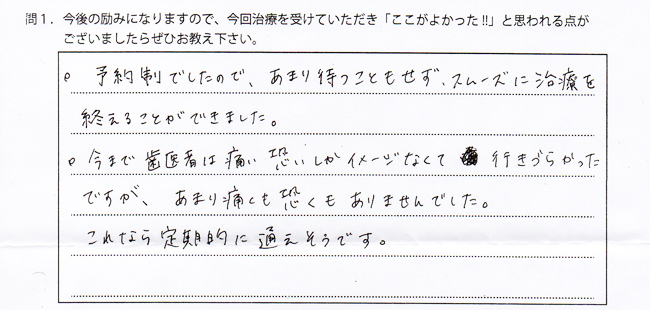 問1．今後の励みになりますので、今回治療を受けていただき「ここがよかった!!」と思われる点が
ございましたらぜひお教え下さい。
○ 予約制でしたので、あまり待つこともせず、スムーズに治療を
終えることができました。
○ 今まで歯医者は痛い恐いしかイメージなくて 行きづらかった
ですが、あまり痛くも恐くもありませんでした。
これなら定期的に通えそうです。